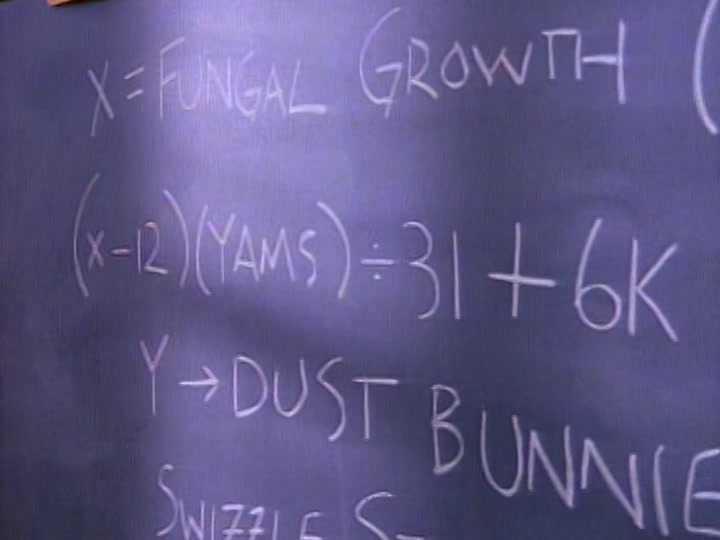 X = FUNGAL GROWTH (
(X-12)(YAMS) ÷ 31 + 6K
Y → DUST BUNNIE
SWIZZLE S